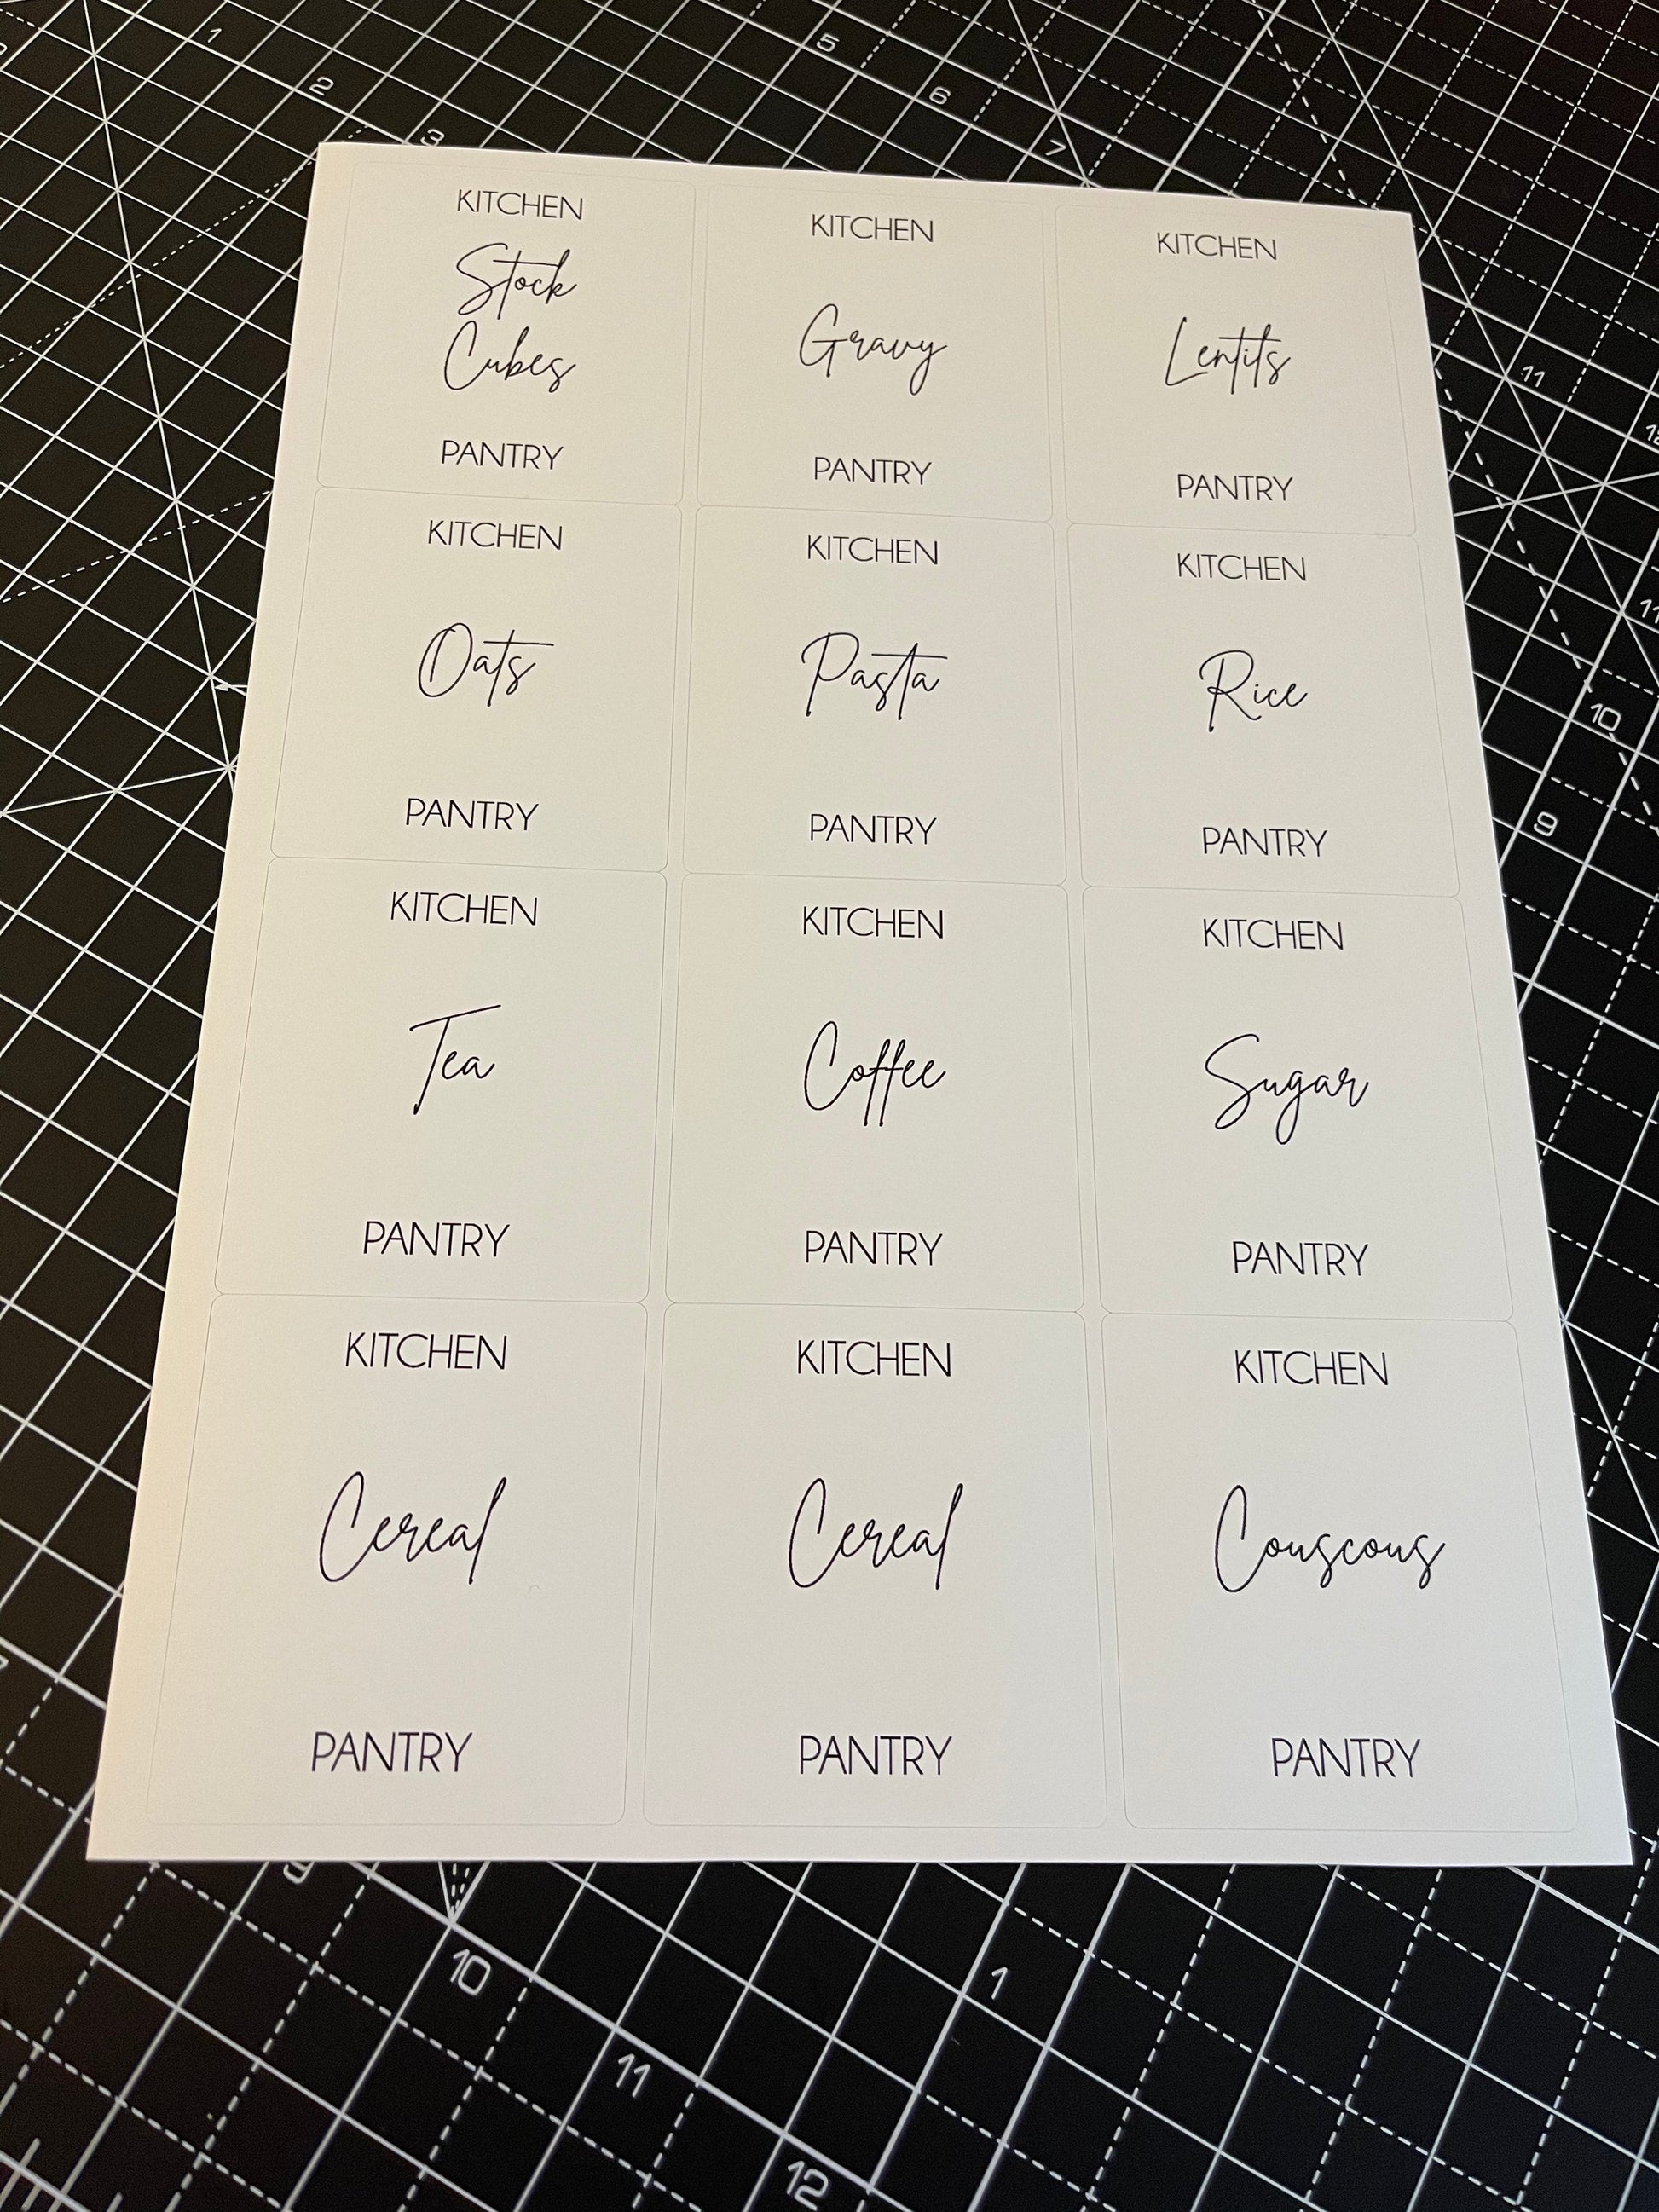 1
2
3
5
6
7
KITCHEN
Stock
Cubes
PANTRY
KITCHEN
Gravy
PANTRY
KITCHEN
Lentils
PANTRY
11
12
KITCHEN
Oats
PANTRY
KITCHEN
Pasta
PANTRY
KITCHEN
Rice
PANTRY
11
10
9
KITCHEN
Tea
PANTRY
KITCHEN
Coffee
PANTRY
KITCHEN
Sugar
PANTRY
KITCHEN
Cereal
PANTRY
KITCHEN
Cereal
PANTRY
KITCHEN
Couscous
PANTRY
9
10
1
11
12